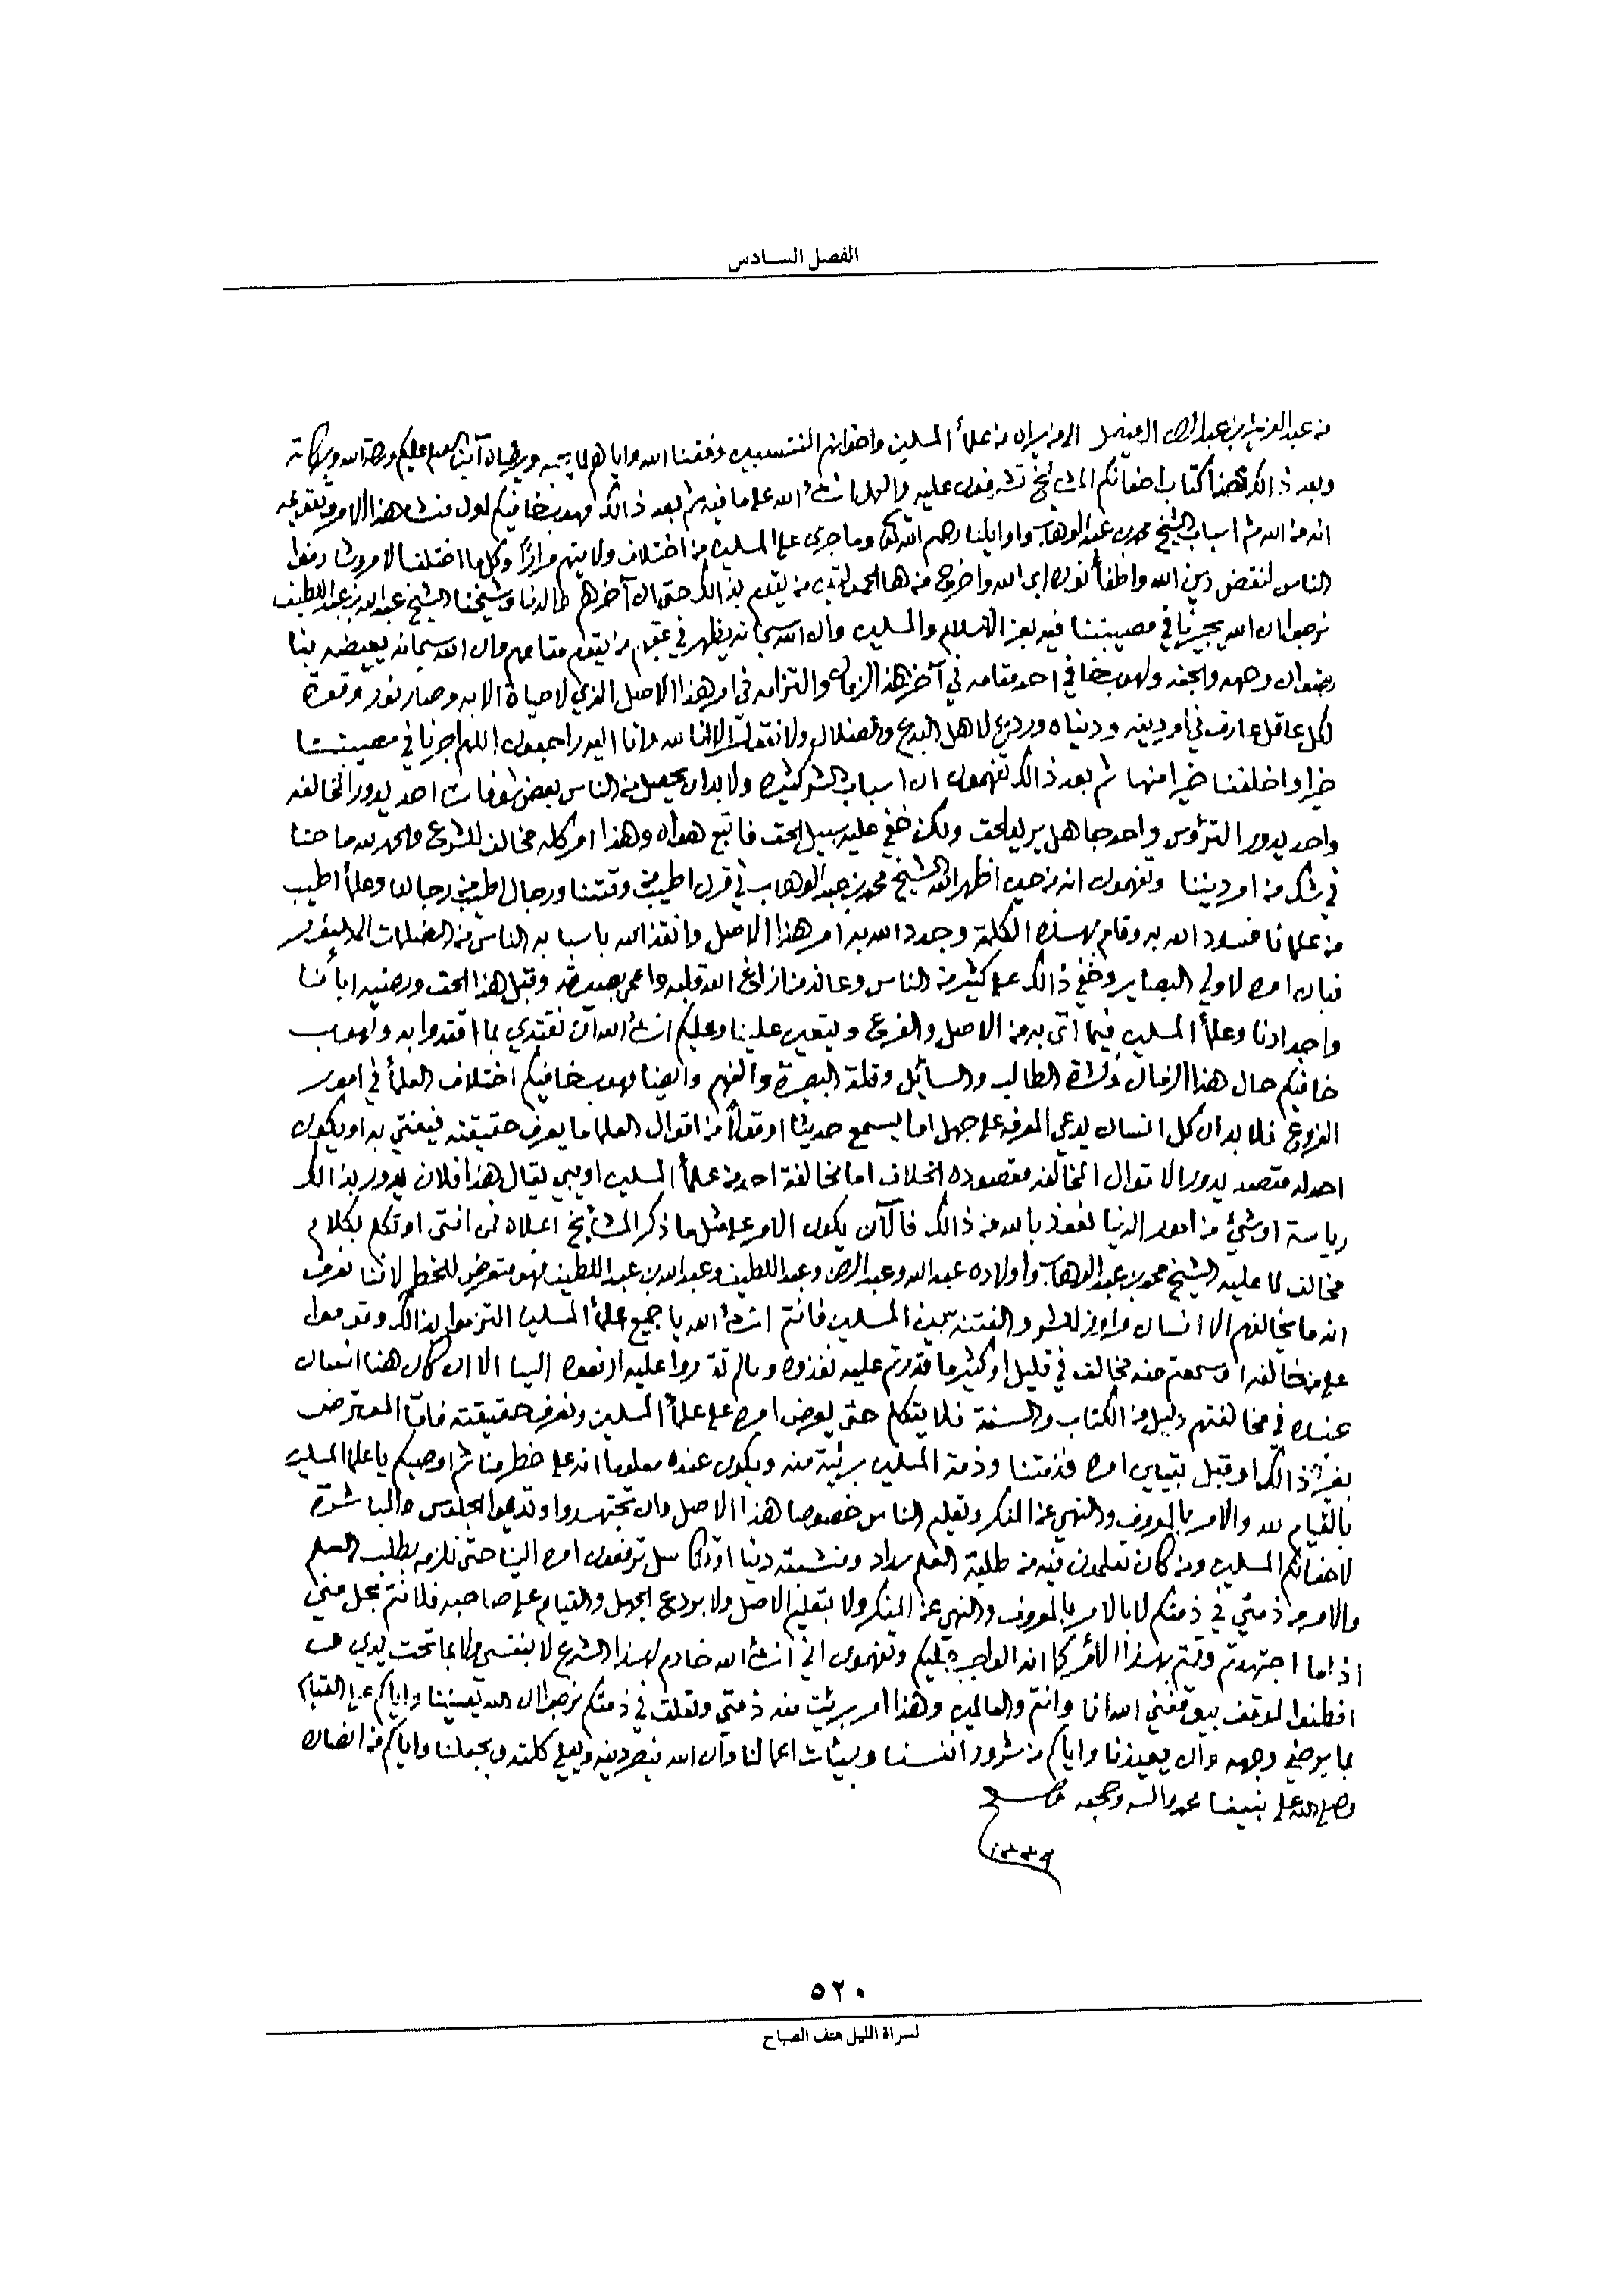 الفصل السادس
من عبد العزيز بن عبد الرحمن الفيصل الى من يراه من علمأ المسلمين واخوانهم المنتسبين وفقنا الله واياهم لما يحبه ويرضاه آمين سلام عليكم ورحمة الله وبركاته
وبعد ذالك هذا كتاب اخوانكم المشايخ تشرفون عليه والعمل انشأ الله على ما فيه ثم بعد ذالك مهوب خافيكم اول منشا هذا الامر وتقويمه
انه من الله ثم اسباب الشيخ محمد بن عبد الوهاب واوايلنا رحمهم الله تعالى وما جرى على المسلمين من اختلاف ولايتهم مرارًا وكل ما اختلف الامر وشارفوا
الناس لنقض دين الله واطفأ نوره ابى الله واخرج من هالحمولتين من يقوم بذالك حتى ان آخرهم والدنا وشيخنا الشيخ عبد الله بن عبد اللطيف
نرجوا ان الله يجبرنا في مصيبتنا فيه بعز الاسلام والمسلمين وان الله سبحانه يظهر في عقبهم من يقوم مقامهم وان الله سبحانه يعيضه بنا
رضوان وجهه والجنه ولهوب خافي احد مقامه في آخر هذا الزمان والتزامه في امر هذا الاصل الذي لا حياة الا به وصار نور وقوة
لكل عاقل عارف في امر دينه ودنياه وردع لاهل البدع والضلال ولا نقول الا انا لله وانا اليه راجعون اللهم اجرنا في مصيبتنا
خيرا واخلفنا خيرا منها ثم بعد ذالك تفهمون ان اسباب الشر كثيره ولا بد ان يحصل من الناس بعض شوفات احد يدور المخالفه
واحد يدور الترؤس واحد جاهل يريد الحق ولكن خفي عليه سبيل الحق فاتبع هواه وهذا امر كله مخالف للشرع والحمد لله ما حنا
في شك من امر ديننا وتفهمون انه من حين اظهر الله الشيخ محمد بن عبد الوهاب في قرن اطيب من وقتنا ورجال اطيب من رجالنا وعلمأ اطيب
من علمانا فسدد الله به وقام بهذه الكلمة وجدد الله به امر هذا الاصل وانقذ الله باسبابه الناس من الضلمات الى النور
فبان امره لاولي البصاير وخفي ذالك على كثير من الناس وعاند من ازاغ الله قلبه واعمى بصيرته وقبل هذا الحق ورضيه ابأنا
واجدادنا وعلمأ المسلمين فيما اتى به من الاصل والفرع ويتعين علينا وعليكم انشأ الله ان نقتدي بما اقتدوا به ولهوب
خافيكم حال هذا الزمان وكثرة الطالب والسايل وقلة البصيرة والفهم وايضا لهوب خافيكم اختلاف العلمأ في امور
الفروع فلا بد ان كل انسان يدعي المعرفه على جهل اما يسمع حديثا او قولًا من اقوال العلما ما يعرف حقيقته فيفتي به او يكون
احد له مقصد يدور الاقوال المخالفه مقصوده الخلاف اما مخالفة احد من علمأ المسلمين او يبي يقال هذا فلان يدور بذالك
رياسة او شيٍ من امور الدنيا نعوذ بالله من ذالك فالآن يكون الامر على مثل ما ذكر المشأيخ اعلاه فمن افتى او تكلم بكلام
مخالف لما عليه الشيخ محمد بن عبد الوهاب وأولاده عبد الله وعبد الرحمن وعبد اللطيف وعبد الله بن عبد اللطيف فهو متعرض للخطر لاننا نعرف
انه ما يخالفهم الا انسان مراوز للشر والفتنه بين المسلمين فانتم انشأ الله يا جميع علمأ المسلمين التزموا بذالك وقوموا
على من خالفه او سمعتم منه مخالف في قليل او كثير ما قدرتم عليه نفذوه ومالم تقدروا عليه ارفعوه الينا الا ان كان هنا انسان
عنده في مخالفتهم دليل من الكتاب والسنة فلا يتكلم حتى يعرض امره على علمأ المسلمين ونعرف حقيقته فامّا المعترض
بغير ذالك او قبل بتبيين امره فذمتنا وذمة المسلمين بريئة منه ويكون عنده معلوما انه على خطر منا ثم اوصيكم يا علما المسلمين
بالقيام لله والامر بالمعروف والنهي عن المنكر وتعليم الناس خصوصا هذا الاصل وان تجتهدوا وتديموا الجلوس والمباشرة
لاخوانكم المسلمين ومن كان تعلمون فيه من طلبة العلم سداد ترفعون امره الينا حتى نلزمه بطلب العلم
والامر من ذمتي في ذمتكم لا بالامر بالمعروف والنهي عن المنكر ولا بتعليم الاصل ولا بردع الجهل والقيام على صاحبه فلا انتم بحل مني
اذ اما اجتهدتم وقمتم بهذا الأمر كما انه الواجب عليكم وتفهمون اني انشأ الله خادم لهذا الشرع لا بنفسي ولا بما تحت يدي
افطنوا لموقف بيوقفني الله انا وانتم والعالمين وهذا امر بريت منه ذمتي وتعلق في ذمتكم نرجوا ان الله يعيننا واياكم على القيام
بما يرضي وجهه وان يعيذنا واياكم من شرور انفسنا وسيئات اعمالنا وان الله ينصر دينه ويعلي كلمته ويجعلنا واياكم من انصاره
وصلى الله على نبينا محمد واله وصحبه وسلم
١٣٣٩
٥٢٠
لسراة الليل هتف الصباح